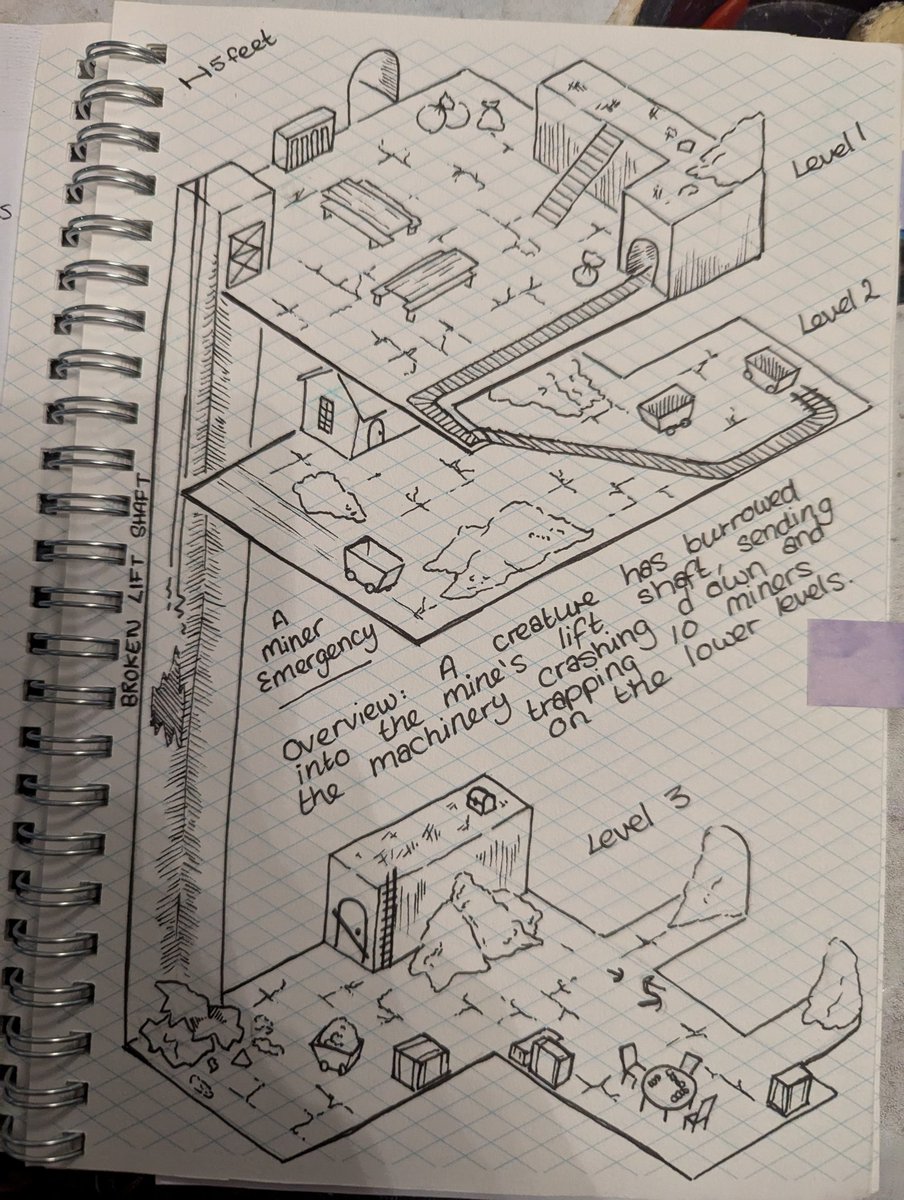 5 feet
Level 1
Level 2
BROKEN LIFT SHAFT
A
miner
Emergency
Overview: A creature has burrowed
into the mine's lift shaft, sending
the machinery crashing down and
trapping 10 miners
on the lower levels.
Level 3